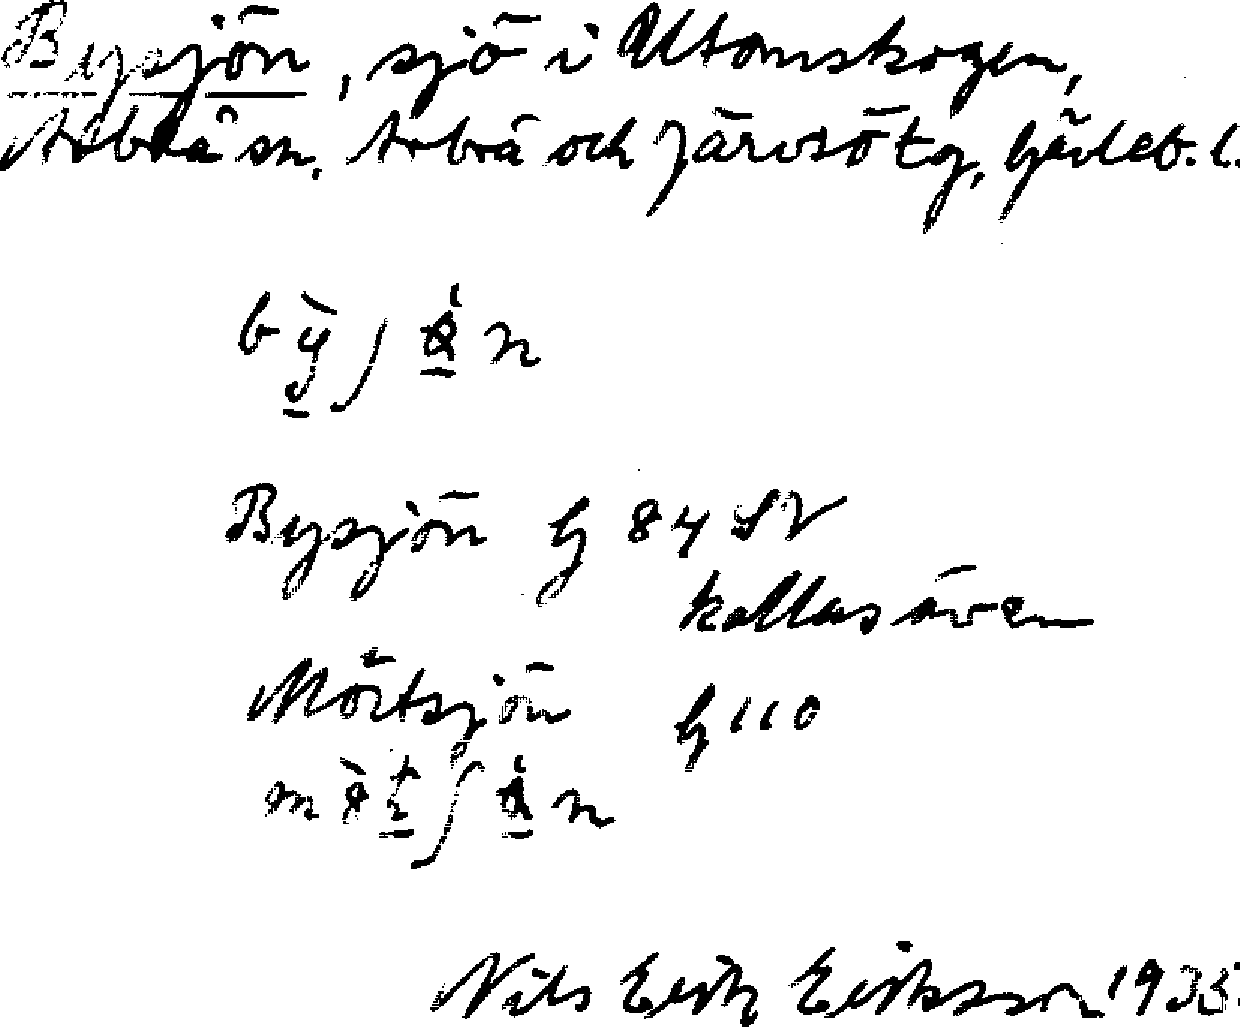 Bysjön, sjö i Utomskogen,
Arbrå sn, Arbrå och Järvsö tg, Gävleb. l.
Bysjön G 84 SV
kallas även
Mörtsjön G 110
Nils Erik Eriksson 1935